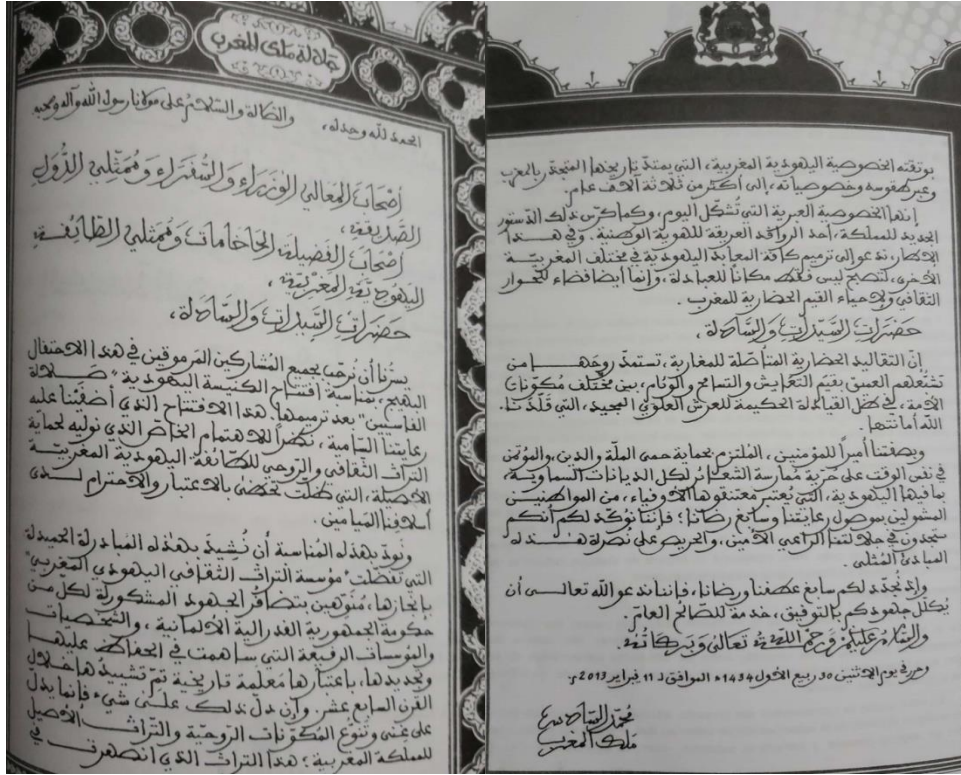 جلالة ملك المغرب
الحمد لله وحده، والصلاة والسلام على مولانا رسول الله وآله وصحبه
أصحاب المعالي الوزراء والسفراء وممثلي الدول
الصديقة،
أصحاب الفضيلة الحاخامات وممثلي الطائفة
اليهودية المغربية،
حضرات السيدات والسادة،
يسرنا أن نرحب بجميع المشاركين المرموقين في هذا الاحتفال
البهيج، بمناسبة افتتاح الكنيسة اليهودية "صلاة
الفاسيين" بعد ترميمها. هذا الافتتاح الذي أضفينا عليه
رعايتنا السامية، نظراً للاهتمام الخاص الذي نوليه لحماية
التراث الثقافي والروحي للطائفة اليهودية المغربية
الأصيلة، التي ظلت تحظى بالاعتبار والاحترام لدى
أسلافنا الميامين.
ونود بهذه المناسبة أن نشيد بهذه المبادرة الحميدة
التي تفضلت "مؤسسة التراث الثقافي اليهودي المغربي"
بإنجازها، منوهين بتضافر الجهود المشكورة لكل من
حكومة الجمهورية الفدرالية الألمانية، والشخصيات
والمؤسسات الرفيعة التي ساهمت في الحفاظ عليها
وتجديدها، باعتبارها معلمة تاريخية تم تشييدها خلال
القرن السابع عشر. وإن دل ذلك على شيء فإنما يدل
على غنى وتنوع المكونات الروحية والتراث الأصيل
للمملكة المغربية؛ هذا التراث الذي انصهرت في
بوتقته الخصوصية اليهودية المغربية، التي يمتد تاريخها المتجذر بالمغرب
وعبر طقوسه وخصوصياته، إلى أكثر من ثلاثة آلاف عام.
إنها الخصوصية العبرية التي تُشكل اليوم، وكما كرس ذلك الدستور
الجديد للمملكة، أحد الروافد العريقة للهوية الوطنية. وفي هذا
الإطار، ندعو إلى ترميم كافة المعابد اليهودية في مختلف المغربية
الأخرى، لتصبح ليس فقط مكاناً للعبادة، وإنما أيضا فضاء للحوار
الثقافي ولإحياء القيم الحضارية للمغرب.
حضرات السيدات والسادة،
إن التقاليد الحضارية المتأصلة للمغاربة، تستمد روحها من
تشبعهم العميق بقيم التعايش والتسامح والوئام، بين مختلف مكونات
الأمة، في ظل القيادة الحكيمة للعرش العلوي المجيد، التي قلدنا
الله أمانتها.
وبصفتنا أميراً للمؤمنين، الملتزم بحماية حمى الملة والدين، والمؤتمن
في نفس الوقت على حرية ممارسة الشعائر لكل الديانات السماوية،
بما فيها اليهودية، التي يُعتبر معتنقوها الأوفياء، من المواطنين
المشمولين بموصول رعايتنا وسابغ رضانا؛ فإننا نؤكد لكم أنكم
ستجدون في جلالتنا الراعي الأمين، والحريص على نصرة هذه
المبادئ المُثلى.
وإذ نجدد لكم سابغ عطفنا ورضانا، فإننا ندعو الله تعالى أن
يُكلل جهودكم بالتوفيق، خدمة للصالح العام.
والسلام عليكم ورحمة الله تعالى وبركاته.
وحرر في يوم الاثنين 30 ربيع الأول 1434ه الموافق لـ 11 فبراير 2013م.
محمد السادس
ملك المغرب